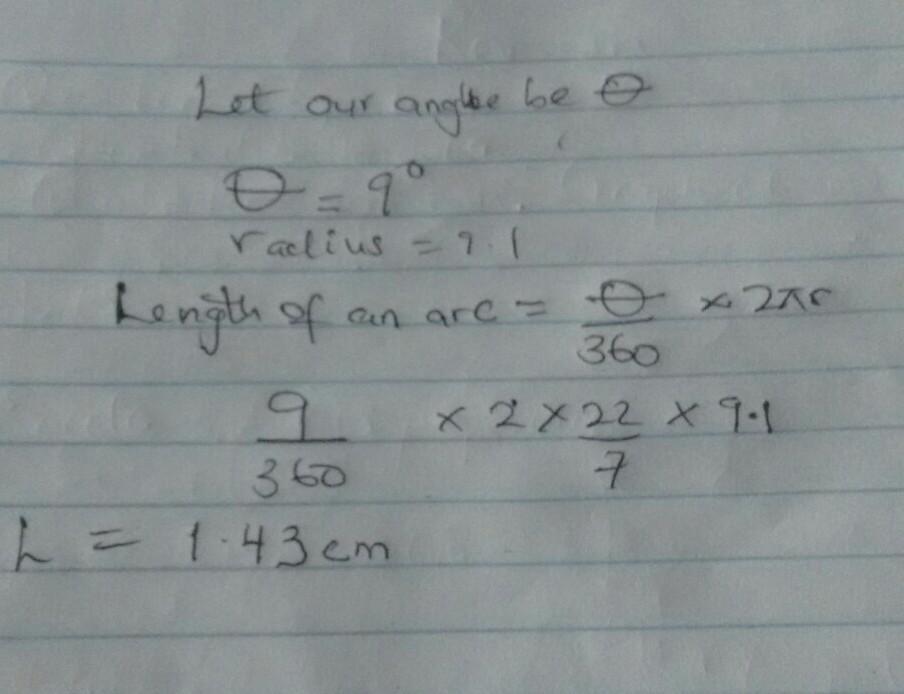 Let our angle be θ
θ = 9°
radius = 9.1
Length of an arc = θ/360 × 2πr
9/360 × 2 × 22/7 × 9.1
L = 1.43cm